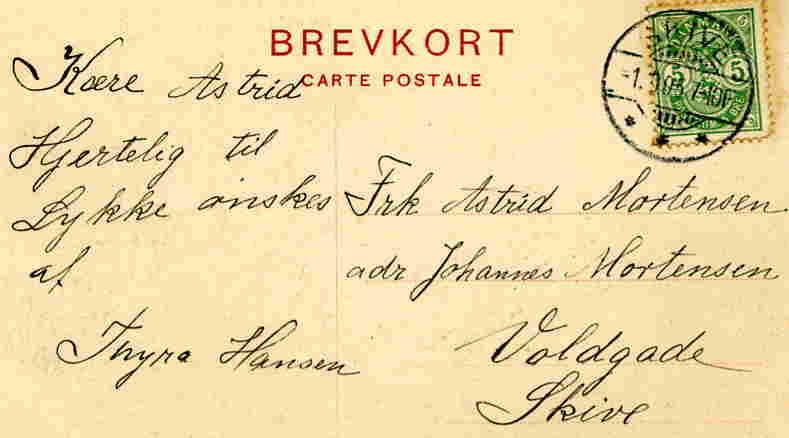 BREVKORT
CARTE POSTALE
SKIVE
5 5
Kære Astrid
Hjertelig til
Lykke ønskes
af
Thyra Hansen
Frk Astrid Mortensen
adr Johannes Mortensen
Voldgade
Skive